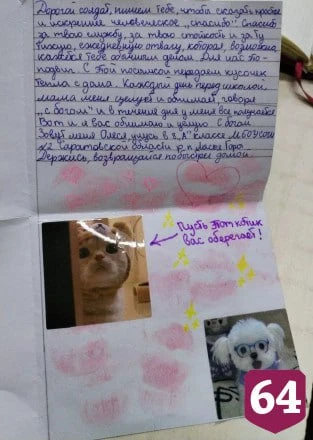 Дорогой солдат, пишем Тебе, чтобы сказать простое
и искреннее человеческое „спасибо". Спасибо
за твою службу, за твою стойкость и за ту
тихую, ежедневную отвагу, которая, возможно,
кажется тебе обычным делом. Для нас это-
подвиг. С этой посылкой передаём кусочек
тепла с дома. Каждый день перед школой
мама меня целует и обнимает, говоря
„с богом" и в течение дня у меня все получается
Вот и я вас обнимаю и целую. С богом.
Зовут меня Олеся, учусь в 8 „А" классе МБОУСОШ
№2 Саратовской области р.п Лысые Горы
Держись, возвращайся побыстрее домой.
Пусть этот котик
вас оберегает!
64